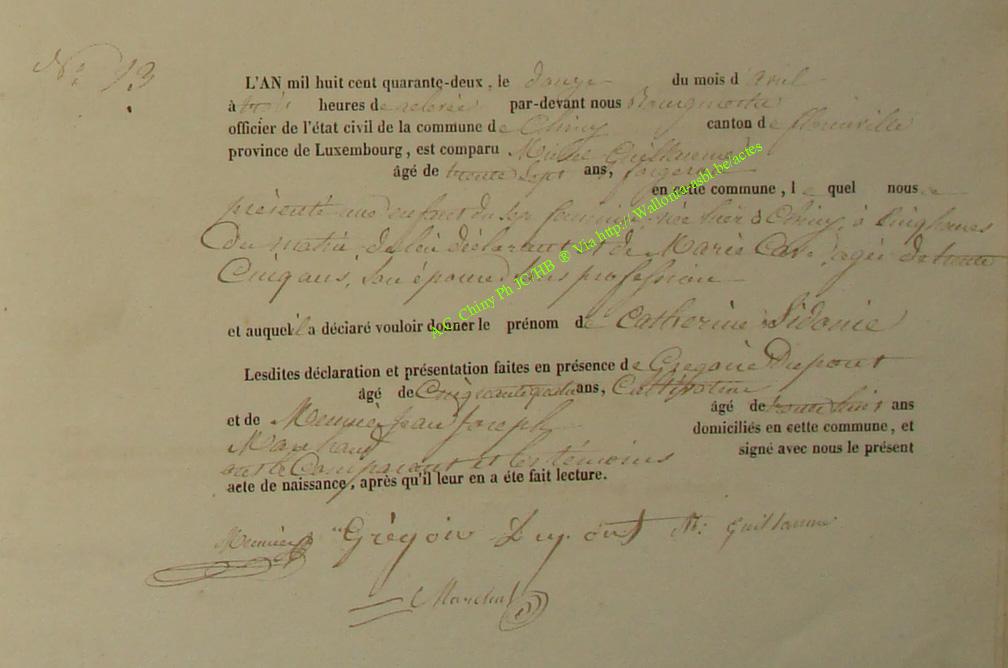 No 13
L'AN mil huit cent quarante-deux, le douze du mois d'avril
à trois heures de relevée par-devant nous Bourgmestre
officier de l'état civil de la commune de Chiny canton de florenville
province de Luxembourg, est comparu Michel Guillaume
âgé de trente sept ans, forgeron
en cette commune, le quel nous a
présenté une enfant du sexe féminin, née hier à Chiny, à cinq heures
du matin, de lui déclarant et de Marie agée de trente
Cinq ans, son épouse, sans profession
et auquel il a déclaré vouloir donner le prénom de Catherine Sidonie
Lesdites déclaration et présentation faites en présence de Gregoire Dupont
âgé de Cinquante quatre ans, Cultivateur
et de Meunier Jean Joseph âgé de trente huit ans
domiciliés en cette commune, et
Marchand
ont le Comparant et les témoins signé avec nous le présent
acte de naissance, après qu'il leur en a éte fait lecture.
Meunier Grégoir Dupont M: Guillaume
Marchal
A.G. Chiny Ph JC/HB ® Via http://Walloniansbl.be/actes